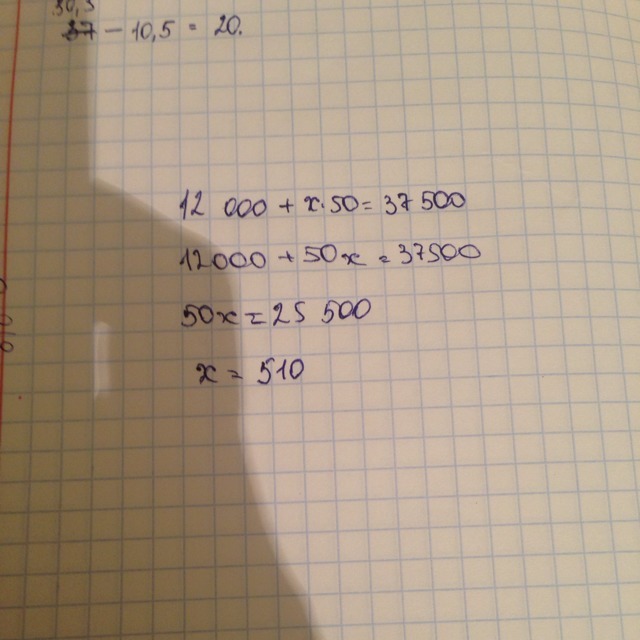 30,5
37 - 10,5 = 20.
12 000 + x·50 = 37 500
12000 + 50x = 37500
50x = 25 500
x = 510